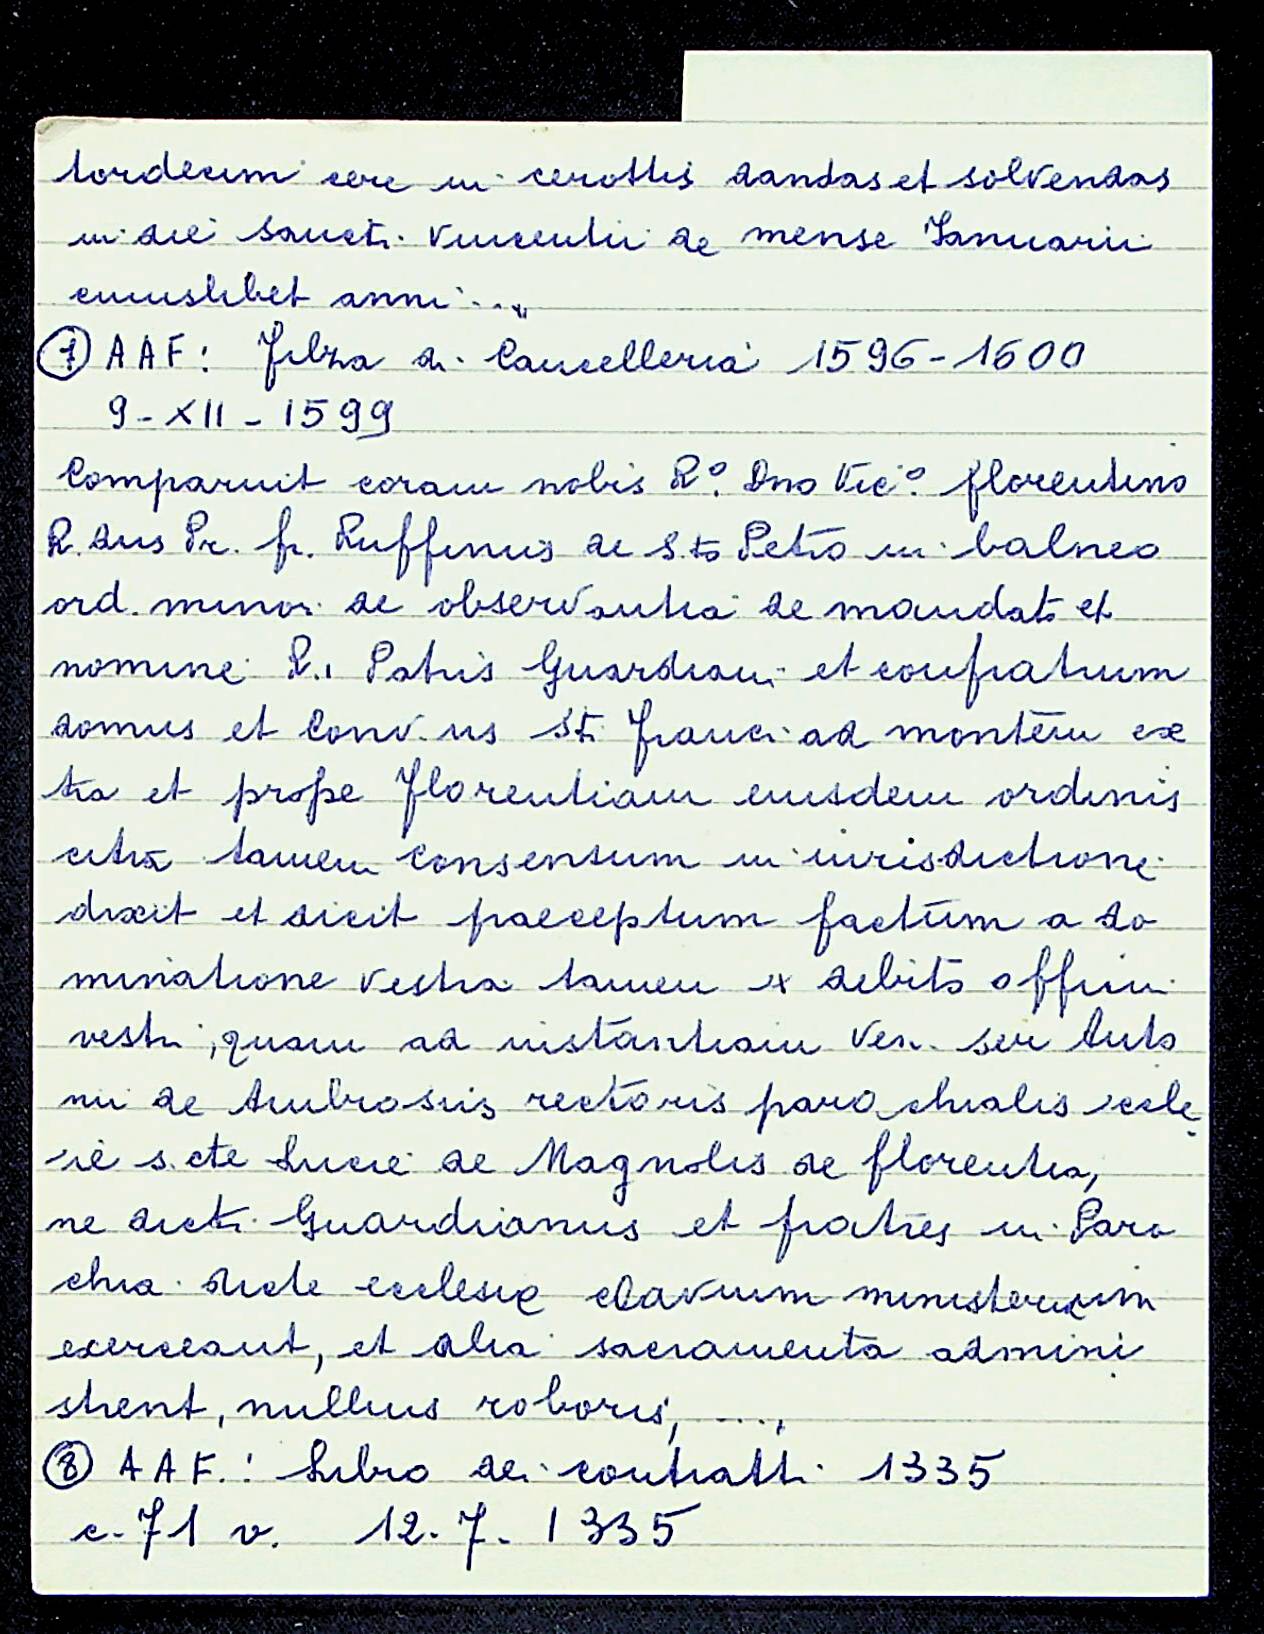 tordecim cere in cerottis dandas et solvendas
in die Sancti Vincentii de mense Ianuarii
cuiuslibet anni...."
7 AAF: Filza di Cancelleria 1596-1600
9-XII-1599
Comparuit coram nobis R.º Dno Vic.º florentino
R. dus Pr. fr. Ruffinus de S.to Petro in balneo
ord. minor. de observantia de mandato et
nomine R.i Patris Guardiani et confratrum
domus et Conv.us S.ti Franci ad montem ex
tra et prope Florentiam eiusdem ordinis
citra tamen consensum in iurisdictione
dixit et dicit praeceptum factum a do
minatione vestra tamen ex debito offitii
vestri, quam ad instantiam Ven. ser Anto
nii de Ambrosiis rectoris parochialis eccle
sie s.cte Lucie de Magnolis de florentia,
ne dicti Guardianus et fratres in Paro
chia dicte ecclesie clavium ministerium
exerceant, et alia sacramenta admini
strent, nullius roboris, ....,
8 AAF.: Libro dei contratti 1335
c. 71 v. 12.7.1335